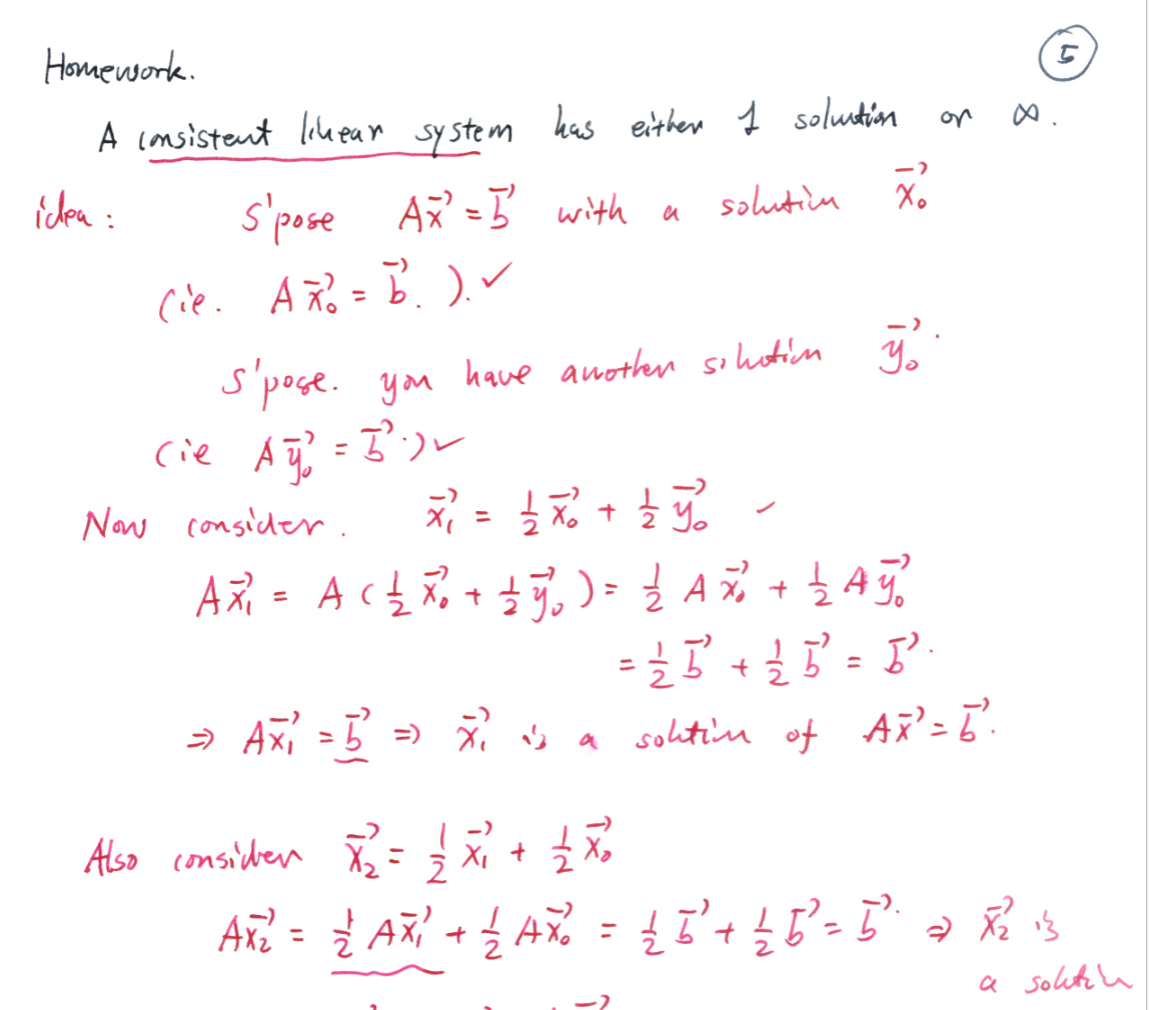 5
Homework.
A consistent linear system has either 1 solution or ∞.
idea : S'pose Ax⃗ = b⃗ with a solution x⃗₀
(ie. Ax⃗₀ = b⃗. ). ✓
S'pose. you have another solution y⃗₀.
(ie Ay⃗₀ = b⃗.) ✓
Now consider. x⃗₁ = ½ x⃗₀ + ½ y⃗₀ ✓
Ax⃗₁ = A (½ x⃗₀ + ½ y⃗₀) = ½ A x⃗₀ + ½ A y⃗₀
= ½ b⃗ + ½ b⃗ = b⃗.
⇒ Ax⃗₁ = b⃗ ⇒ x⃗₁ is a solution of Ax⃗ = b⃗.
Also consider x⃗₂ = ½ x⃗₁ + ½ x⃗₀
Ax⃗₂ = ½ Ax⃗₁ + ½ Ax⃗₀ = ½ b⃗ + ½ b⃗ = b⃗. ⇒ x⃗₂ is
a solution